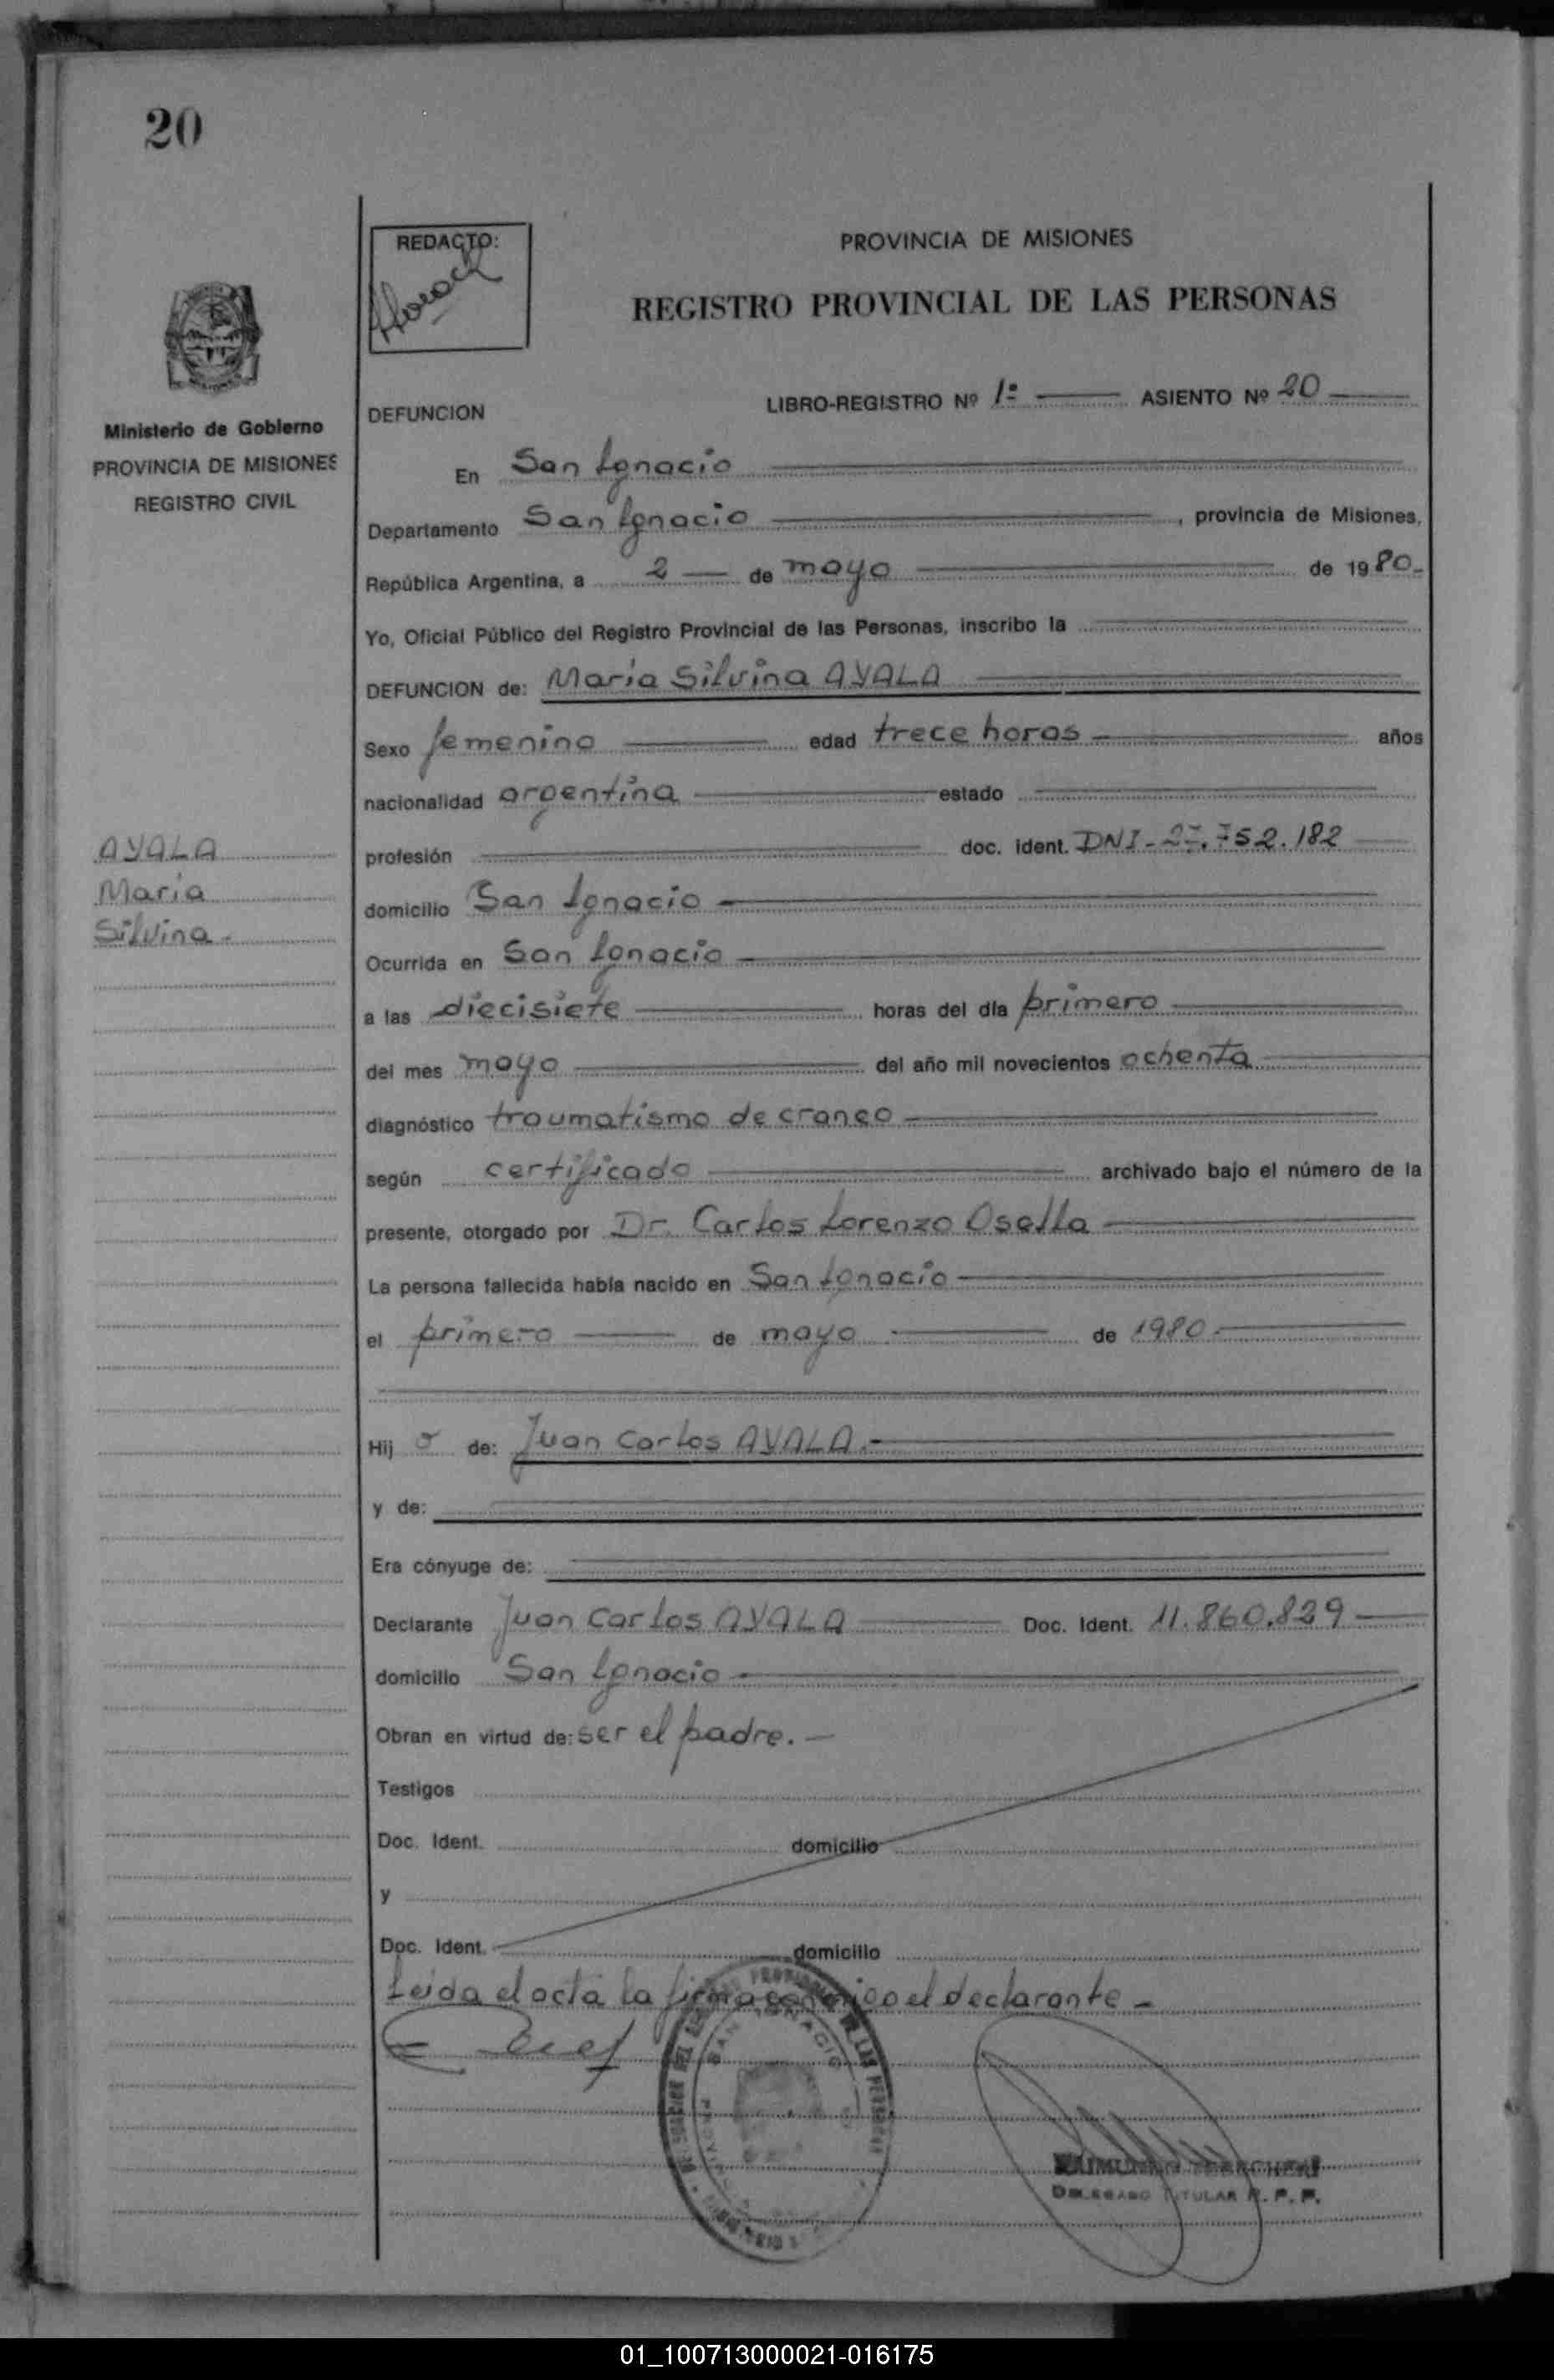 20
REDACTO:
PROVINCIA DE MISIONES
REGISTRO PROVINCIAL DE LAS PERSONAS
Ministerio de Gobierno
PROVINCIA DE MISIONES
REGISTRO CIVIL
AYALA
Maria
Silvina -
DEFUNCION LIBRO-REGISTRO Nº 1º ASIENTO Nº 20
En San Ignacio
Departamento San Ignacio, provincia de Misiones,
República Argentina, a 2 de mayo de 1980.
Yo, Oficial Público del Registro Provincial de las Personas, inscribo la
DEFUNCION de: Maria Silvina AYALA
Sexo femenino edad trece horas años
nacionalidad argentina estado
profesión doc. ident. DNI- 27.752.182
domicilio San Ignacio
Ocurrida en San Ignacio
a las diecisiete horas del día primero
del mes mayo del año mil novecientos ochenta
diagnóstico traumatismo de craneo
según certificado archivado bajo el número de la
presente, otorgado por Dr. Carlos Lorenzo Osella
La persona fallecida había nacido en San Ignacio
el primero de mayo de 1980.
Hij a de: Juan Carlos AYALA.-
y de:
Era cónyuge de:
Declarante Juan Carlos AYALA Doc. Ident. 11.860.829
domicilio San Ignacio
Obran en virtud de: ser el padre. -
Testigos
Doc. Ident. domicilio
y
Doc. Ident. domicilio
Leida el acta la firma conmigo el declarante -
SAN IGNACIO
DELEGADO TITULAR R. P. P.
01_100713000021-016175